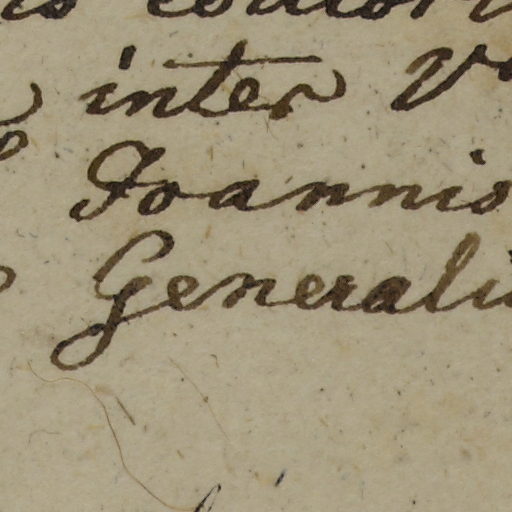 inter
Joannis
Generali